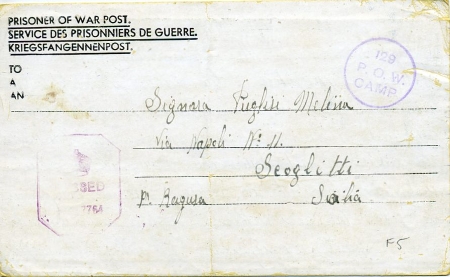 PRISONER OF WAR POST.
SERVICE DES PRISONNIERS DE GUERRE.
KRIEGSFANGENNENPOST.
TO
A
AN
129
P.O.W.
CAMP
Signora Puglisi Melina
Via Napoli N° 11.
Scoglitti
P. Ragusa Sicilia
SSED
7764
F5